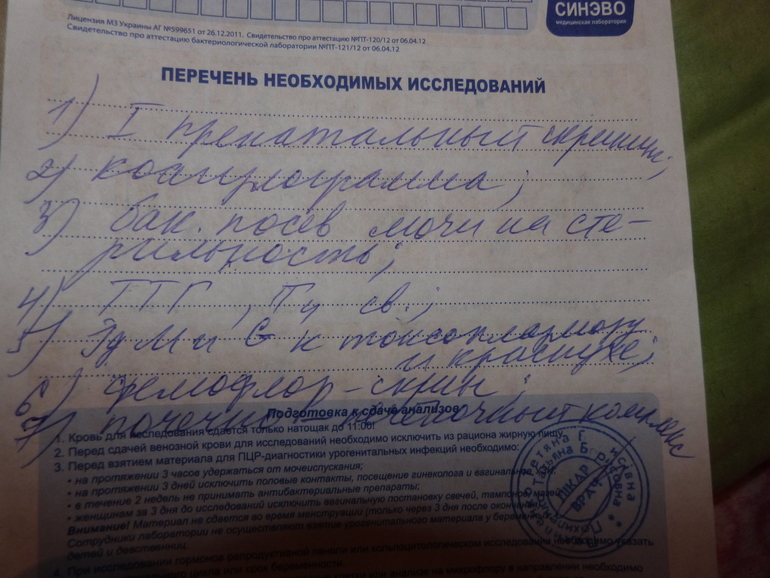 СИНЭВО
медицинская лаборатория
Лицензия МЗ Украины АГ №599651 от 26.12.2011. Свидетельство про аттестацию №ПТ-120/12 от 06.04.12
Свидетельство про аттестацию бактериологической лаборатории №ПТ-121/12 от 06.04.12
ПЕРЕЧЕНЬ НЕОБХОДИМЫХ ИССЛЕДОВАНИЙ
1) I пренатальный скрининг;
2) коагулограмма;
3) бак. посев мочи на сте-
рильность;
4) ТТГ, Т4 св.;
5) Ig M и G к токсоплазмозу
и краснухе;
6) фемофлор-скрин;
7) почечно-печеночный комплекс
Подготовка к сдаче анализов
1. Кровь для исследования сдается только натощак до 11:00!
2. Перед сдачей венозной крови для исследований необходимо исключить из рациона жирную пищу
3. Перед взятием материала для ПЦР-диагностики урогенитальных инфекций необходимо:
• на протяжении 3 часов удержаться от мочеиспускания;
• на протяжении 3 дней исключить половые контакты, посещение гинеколога и
• в течение 2 недель не принимать антибактериальные препараты;
• женщинам за 3 дня до исследований исключить вагинальную постановку свечей,
Внимание! Материал не сдается во время менструации (только через 3 дня после
Сотрудники лаборатории не осуществляют взятие урогенитального материала у
детей и девственниц.
4. При исследовании гормонов репродуктивной панели
необходимо указать
ЛІКАР
ВРАЧ